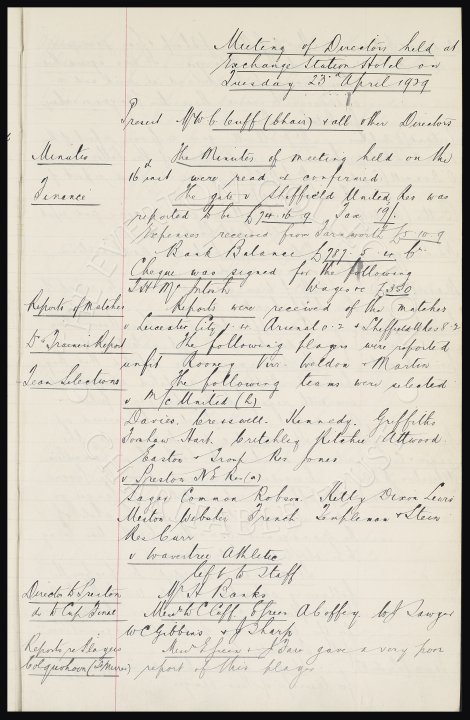 Meeting of Directors held at
Exchange Station Hotel on
Tuesday 23rd April 1929
Present Mr W C Cuff (Chair) & all other Directors
Minutes The Minutes of meeting held on the
16th inst were read & confirmed
Finance The gate v Sheffield United Res was
reported to be £74.16.9 Tax 19/-
Expenses received from Farnworth £5.10.9
Bank Balance £789.5.
Cheque was signed for the following
T. H. McIntosh Wages &c £330
Reports of Matches Reports were received of the matches
v Leicester City Arsenal 0-2 & Sheffield U Res 8-2
Dr & Trainer's Report The following players were reported
unfit Rooney Virr Weldon & Martin
Team Selections The following teams were selected
v M/c United (h)
Davies. Cresswell. Kennedy. Griffiths
Hart. Critchley Ritchie Attwood
Easton & Troup Res Jones
v Preston N E Res (a)
Sagar Common Robson Kelly Dixon Lewis
Meston Webster French Templeman & Stein
Res Curr
v Wavertree Athletic
left to Staff
Director to Preston Mr H Banks
do to Cup Final Messrs W C Cuff E Green A Coffey W J Sawyer
W C Gibbins & J Sharp
Reports re Players Messrs E Green & J Fare gave a very poor
Colquhoun (St Mirren) report of this player